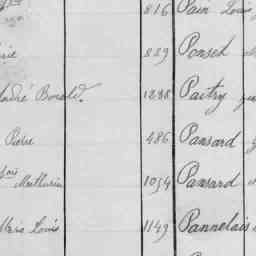 816 Pain Louis
889 Ponsed
André Bonold. 1288 Paitry
Pierre 486 Pansard
Mathurin 1094 Pansard
Marie Louis 1149 Pannelais